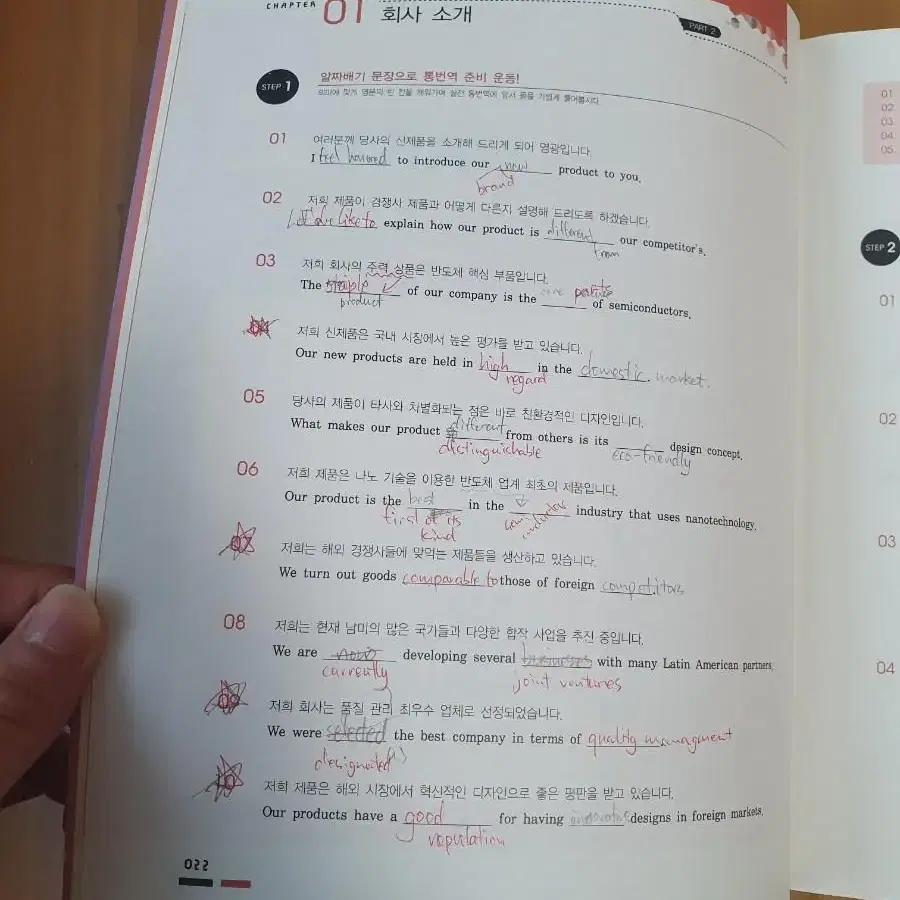 CHAPTER 01 회사 소개
PART 2
STEP 1 알짜배기 문장으로 통번역 준비 운동!
의미에 맞게 영문의 빈 칸을 채워가며 실전 통번역에 앞서 몸을 가볍게 풀어봅시다.
01 여러분께 당사의 신제품을 소개해 드리게 되어 영광입니다.
I feel honored to introduce our new product to you.
brand
02 저희 제품이 경쟁사 제품과 어떻게 다른지 설명해 드리도록 하겠습니다.
like to explain how our product is different our competitor's.
from
03 저희 회사의 주력 상품은 반도체 핵심 부품입니다.
The staple of our company is the core parts of semiconductors.
product
04 저희 신제품은 국내 시장에서 높은 평가를 받고 있습니다.
Our new products are held in high in the domestic market.
regard
05 당사의 제품이 타사와 차별화되는 점은 바로 친환경적인 디자인입니다.
What makes our product different from others is its design concept.
distinguishable eco-friendly
06 저희 제품은 나노 기술을 이용한 반도체 업계 최초의 제품입니다.
Our product is the best in the industry that uses nanotechnology.
first of its
kind
07 저희는 해외 경쟁사들에 맞먹는 제품들을 생산하고 있습니다.
We turn out goods comparable to those of foreign competitors
08 저희는 현재 남미의 많은 국가들과 다양한 합작 사업을 추진 중입니다.
We are now developing several businesses with many Latin American partners.
currently joint ventures
09 저희 회사는 품질 관리 최우수 업체로 선정되었습니다.
We were selected the best company in terms of quality managment
designated
10 저희 제품은 해외 시장에서 혁신적인 디자인으로 좋은 평판을 받고 있습니다.
Our products have a good for having designs in foreign markets.
reputation
022
01
02
03
04
05
STEP 2
01
02
03
04